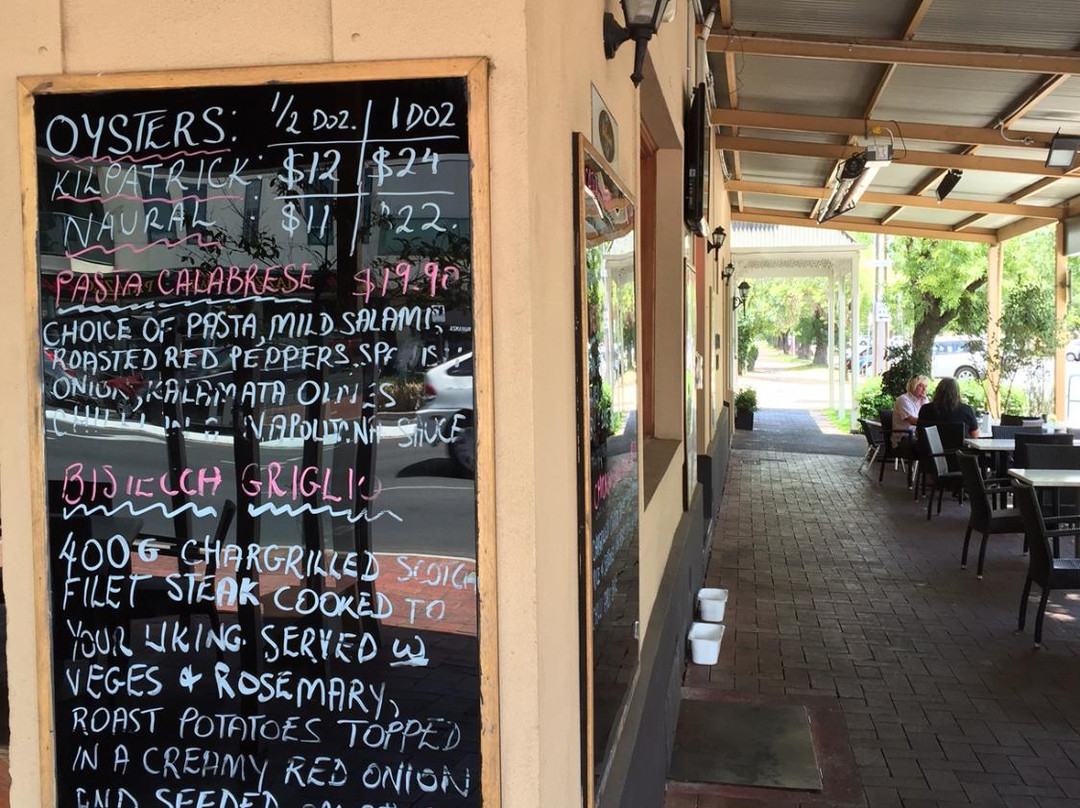 OYSTERS: 1/2 DOZ. 1 DOZ
KILPATRICK: $12 $24
NAURAL : $11 $22.
PASTA CALABRESE $19.90
CHOICE OF PASTA, MILD SALAMI,
ROASTED RED PEPPERS
ONION, KALAMATA OLIVES
CHILLI IN A NAPOLITANA SAUCE
GRIGLIO
400G CHARGRILLED SCOTCH
FILET STEAK COOKED TO
YOUR LIKING. SERVED W
VEGES & ROSEMARY,
ROAST POTATOES TOPPED
IN A CREAMY RED ONION
AND SEEDED